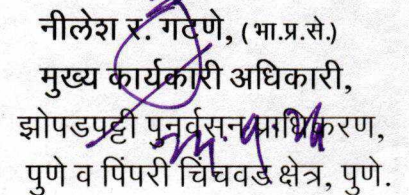 नीलेश र. गटणे, (भा.प्र.से.)
मुख्य कार्यकारी अधिकारी,
झोपडपट्टी पुनर्वसन प्राधिकरण,
पुणे व पिंपरी चिंचवड क्षेत्र, पुणे.